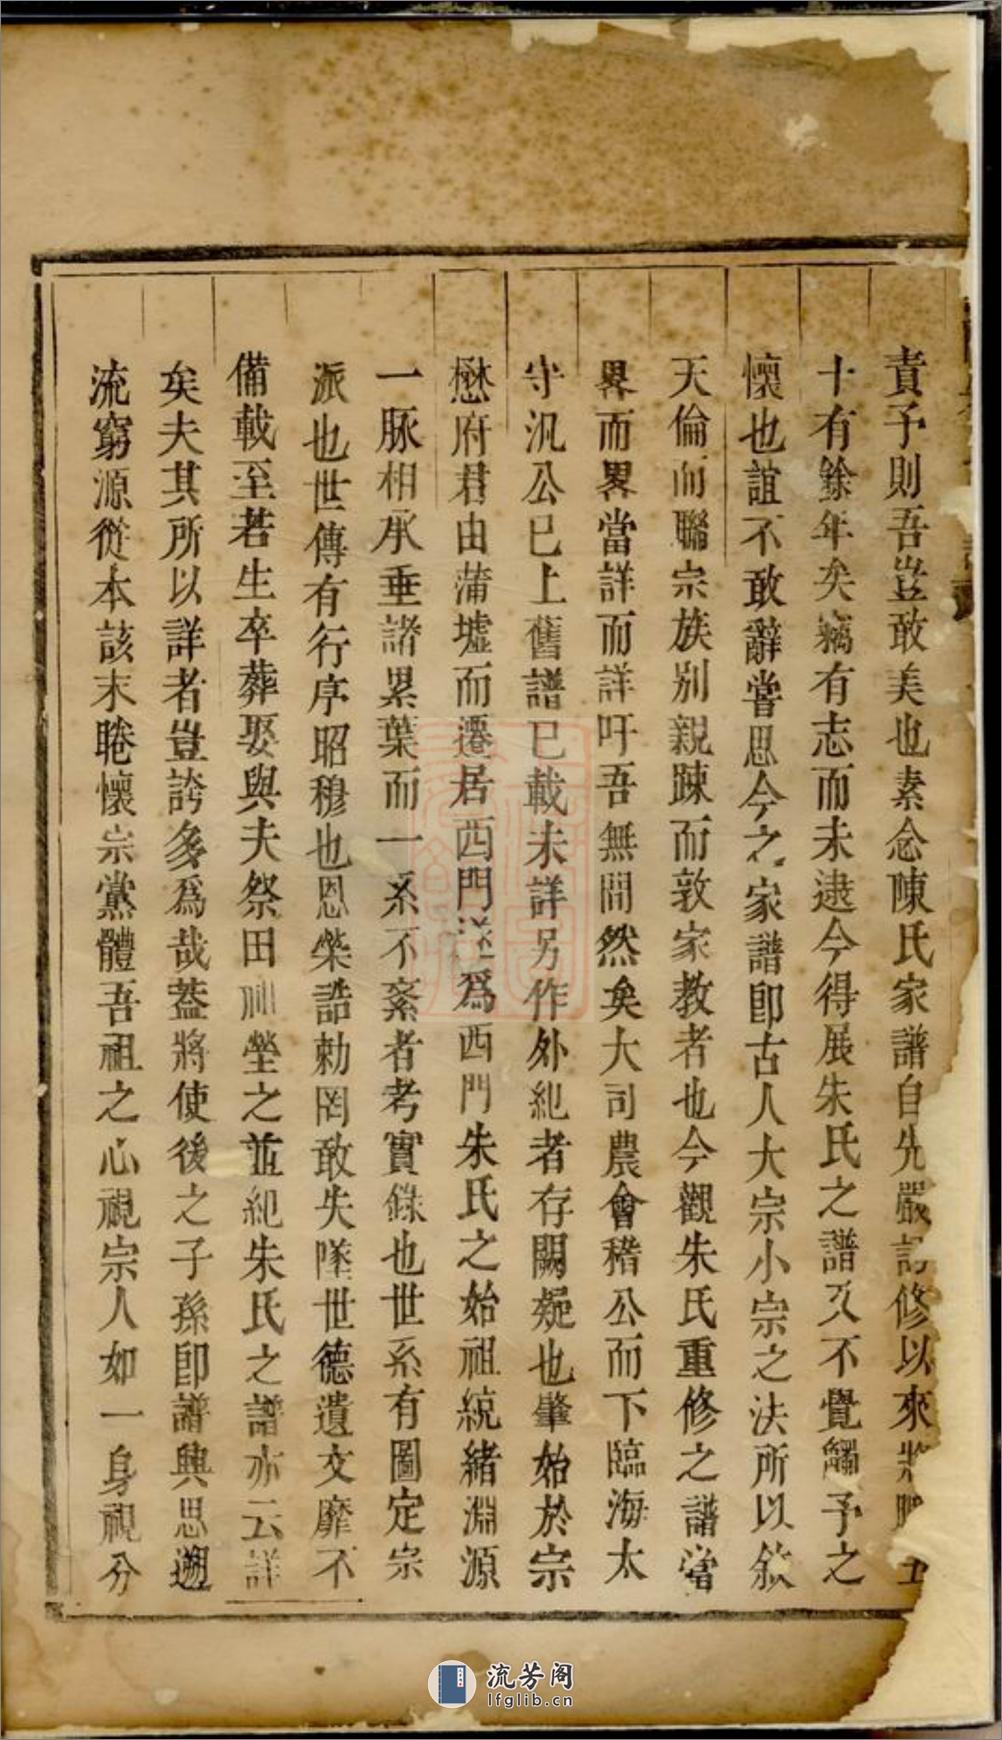 責予則吾豈敢美也素念陳氏家譜自先嚴訂修以來將
十有餘年矣竊有志而未逮今得展朱氏之譜又不覺觸予之
懷也誼不敢辭嘗思今之家譜即古人大宗小宗之法所以敘
天倫而聯宗族別親踈而敦家教者也今觀朱氏重修之譜當
畧而畧當詳而詳吁吾無間然矣大司農會稽公而下臨海太
守汎公已上舊譜已載未詳另作外紀者存闕疑也肇始於宗
懋府君由蒲墟而遷居西門遂為西門朱氏之始祖統緒淵源
一脉相承垂諸累葉而一系不紊者考實錄也世系有圖定宗
派也世傳有行序昭穆也恩榮誥勅罔敢失墜世德遺文靡不
備載至若生卒葬娶與夫祭田祔塋之並紀朱氏之譜亦云詳
矣夫其所以詳者豈誇多為哉蓋將使後之子孫即譜興思遡
流窮源從本該末睠懷宗黨體吾祖之心視宗人如一身視分
流芳阁
lfglib.cn